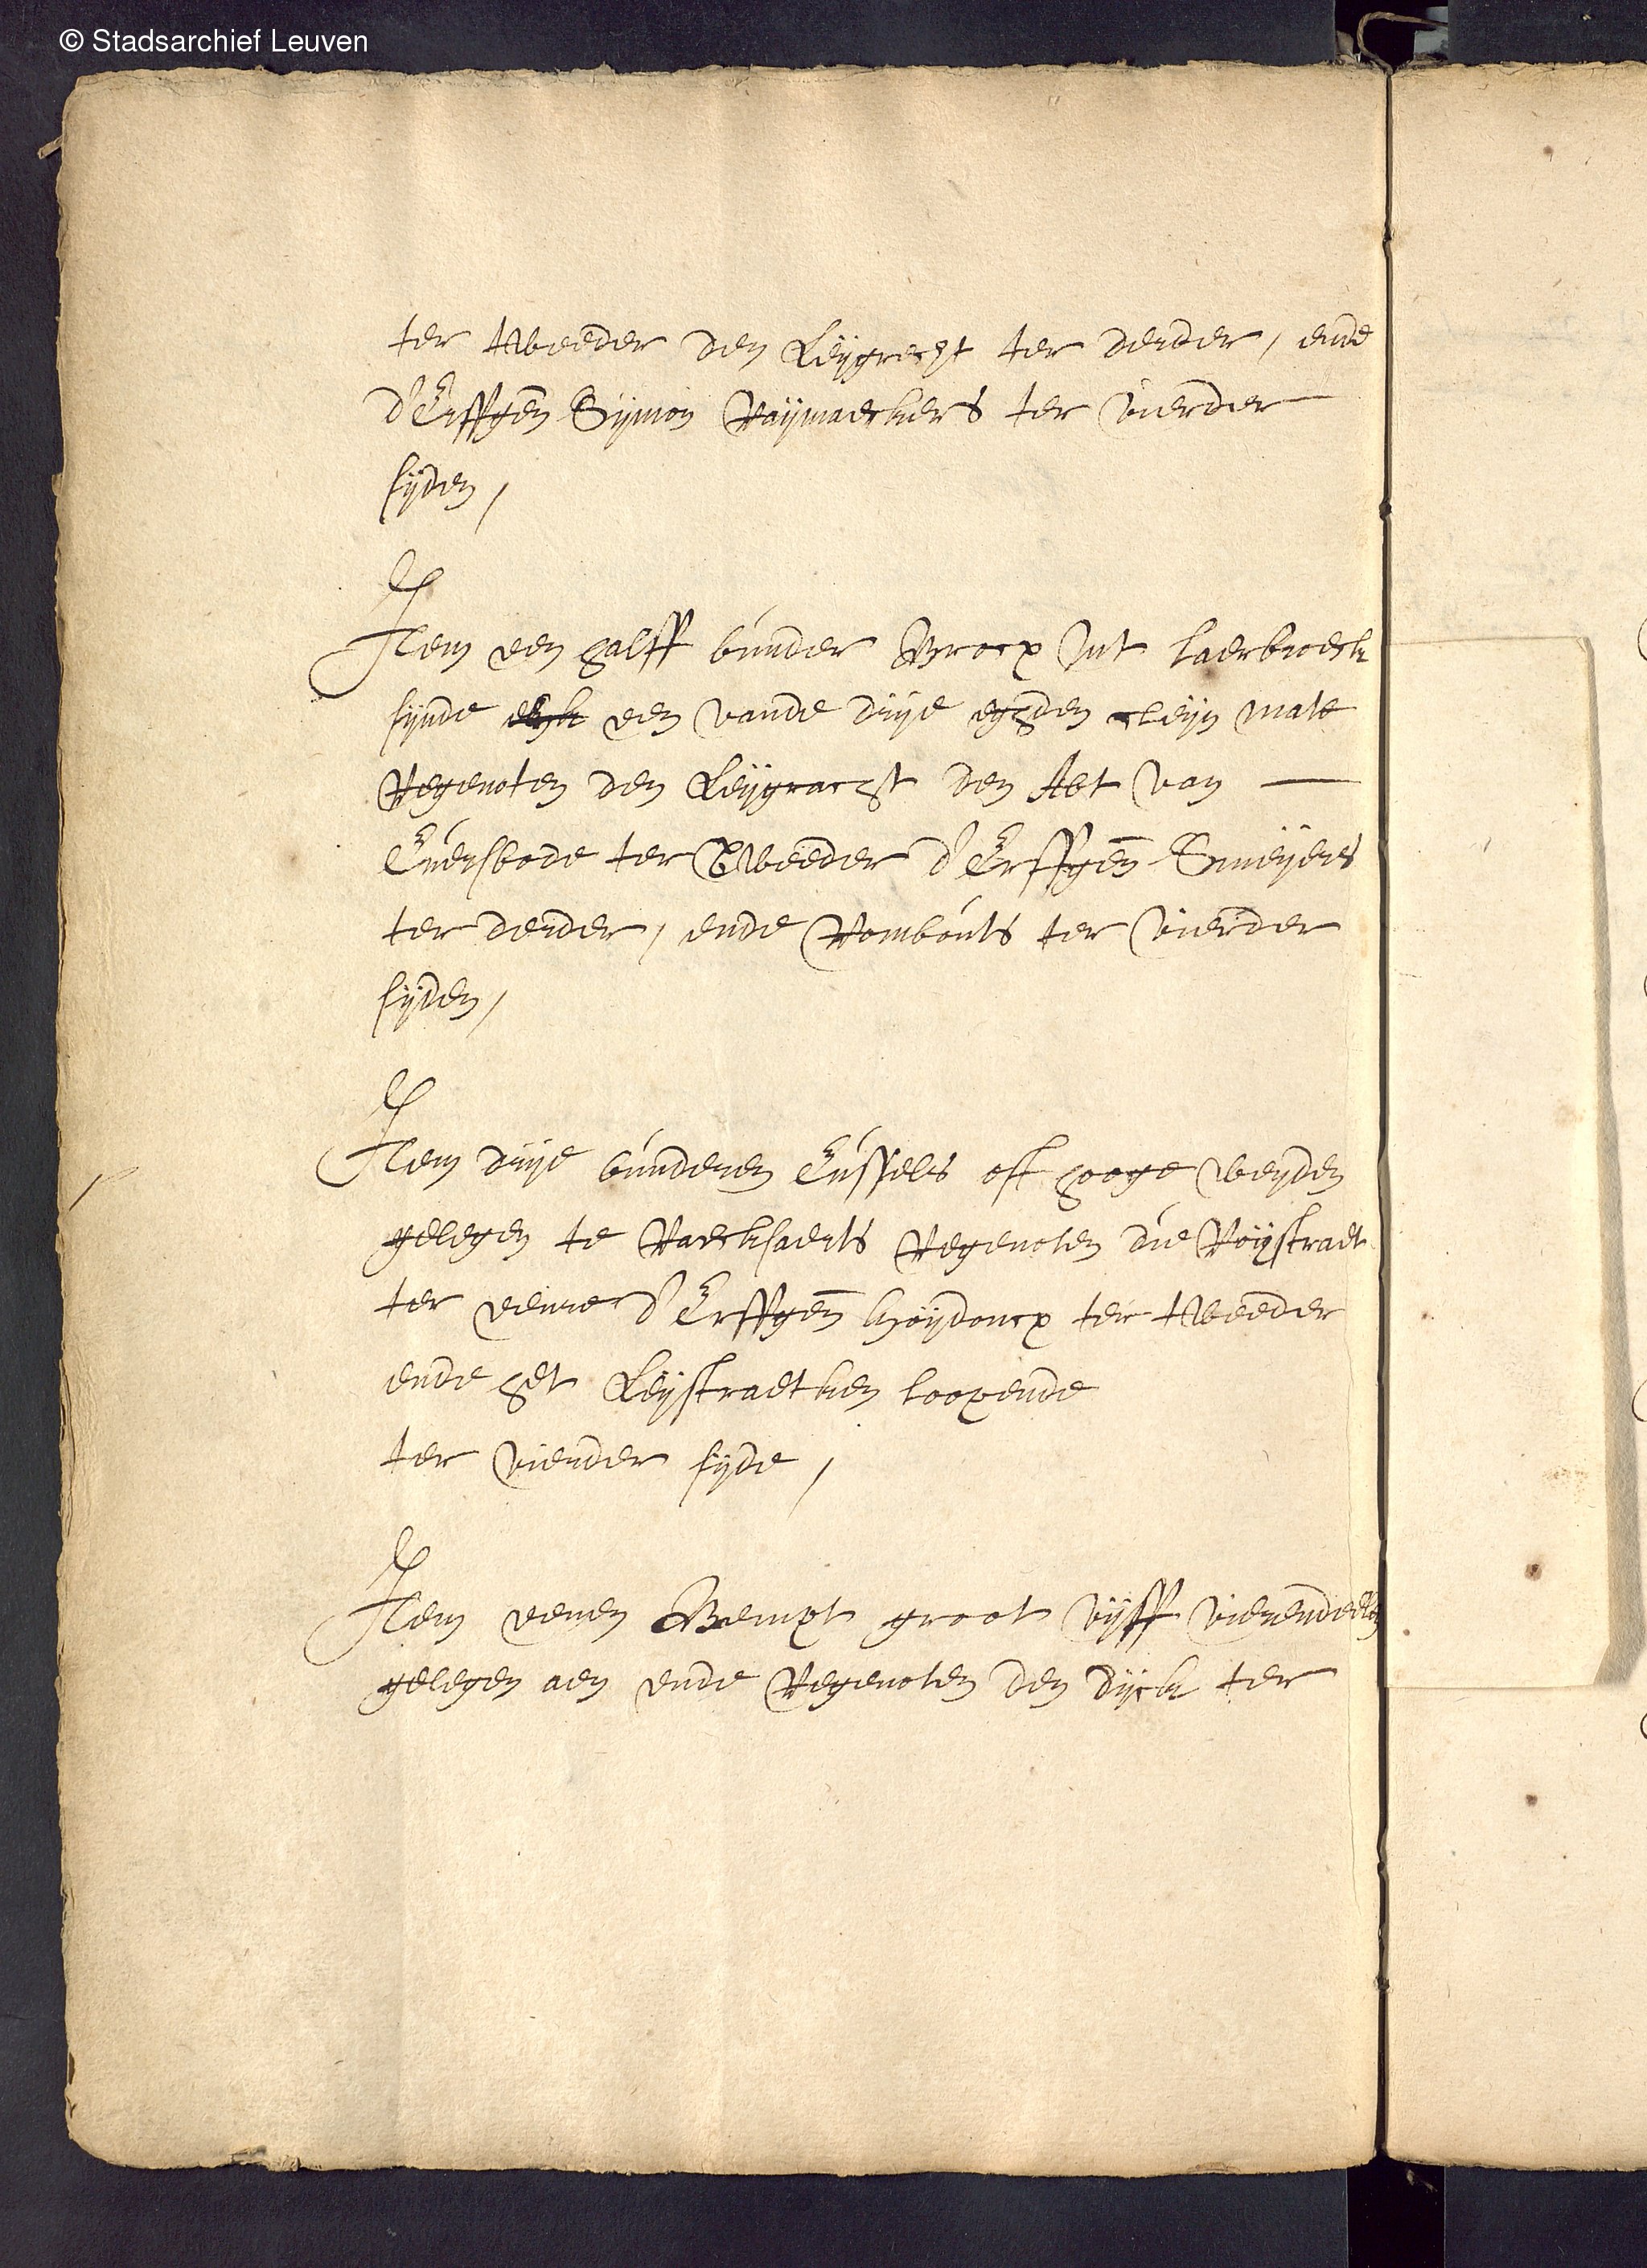 © Stadsarchief Leuven
ter tweeder den Leijgrecht ter derder / ende
d'Erffgen Sijmon Raijmaeckers ter vierder
sijden /
Item een halff bunder Broex int Laerbroeck
sijnde een vande drije eghden cleijn mate
Regenoten den Leijgracht den Abt van
Everbode ter Tweeder d'Erffgen Smeijers
ter derder / ende Rombouts ter vierder
sijden /
Item drije bunderen Eussels oft hooge weijden
gelegen te Raeckhaerts Regenoten die Roijstraet
ter eenre d'Erffgen Hoijdoncx ter tweeder
ende het Leijstraetken loopende
ter vierder sijde /
Item eenen Bempt groot vijff vierendeelen
gelegen aen ende Regenoten den Dijck ter